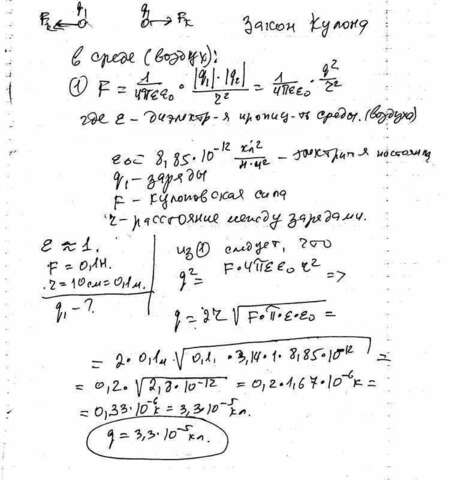 Fк q1 q1 Fк Закон Кулона
в среде (воздух):
① F = 1/4πεε0 · |q1|·|q2|/r² = 1/4πεε0 · q²/r²
где ε - диэлектр-я прониц-ть среды. (воздух)
ε0 = 8,85·10^-12 кл²/н·м² - электрич-я постоян
q1 - заряды
F - кулоновская сила
r - расстояние между зарядами.
ε ≈ 1.
F = 0,1н.
r = 10см = 0,1м.
q1 - ?
из ① следует, что
q² = F·4πεε0 r² =>
q = 2r √F·π·ε·ε0 =
= 2·0,1м √0,1·3,14·1·8,85·10^-12 =
= 0,2·√2,8·10^-12 = 0,2·1,67·10^-6к =
= 0,33·10^-6к = 3,3·10^-5кл.
q = 3,3·10^-5кл.